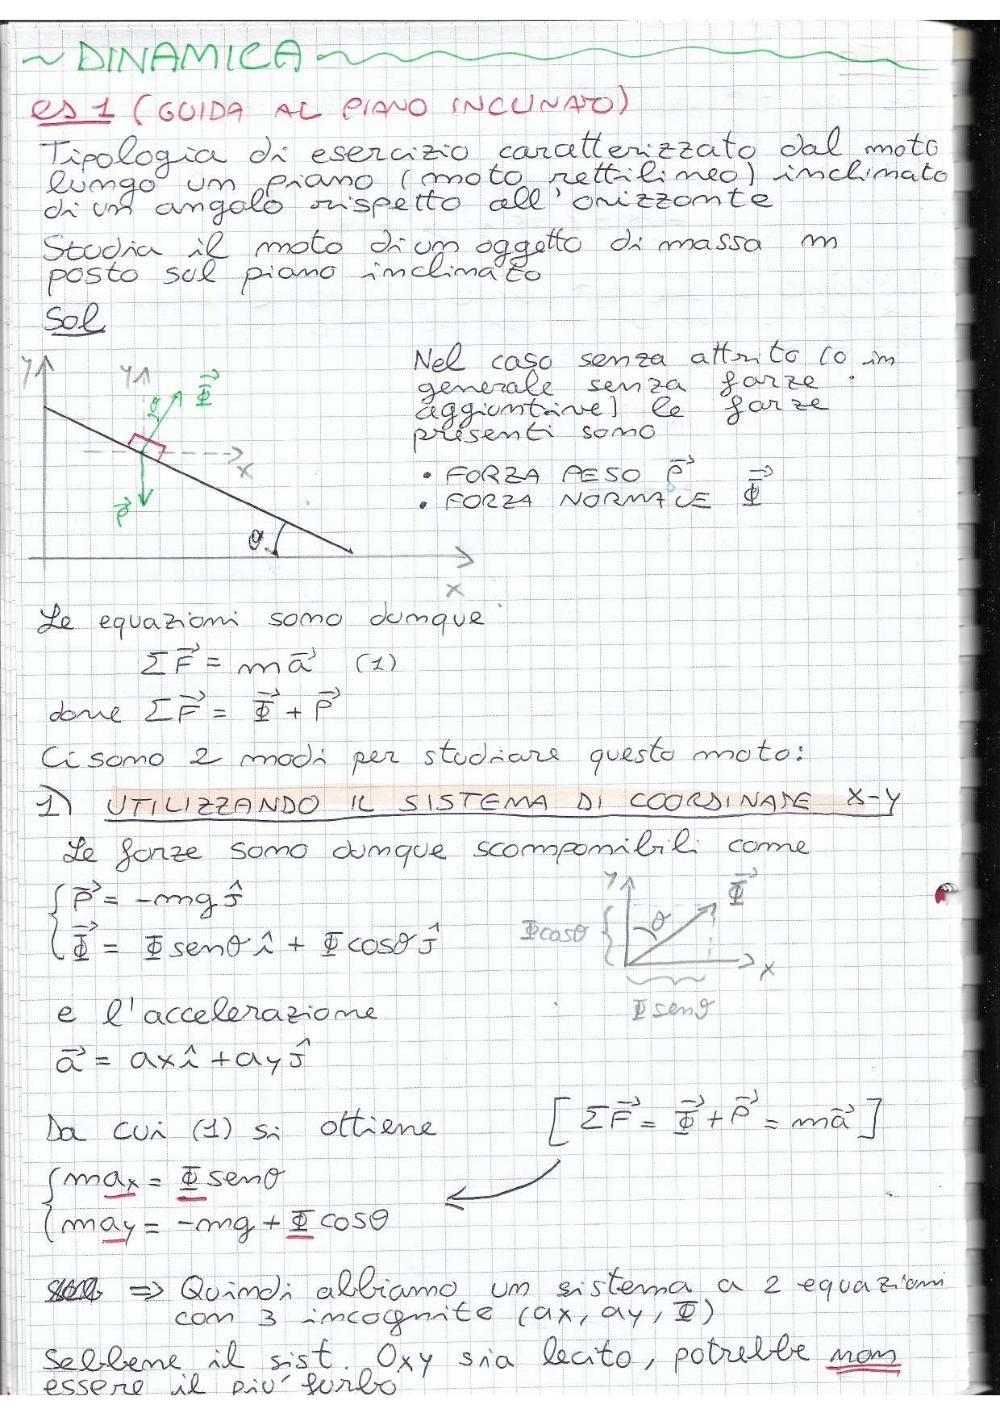 ~ DINAMICA ~
es 1 (GUIDA AL PIANO INCLINATO)
Tipologia di esercizio caratterizzato dal moto
lungo un piano (moto rettilineo) inclinato
di un angolo rispetto all'orizzonte
Studia il moto di un oggetto di massa m
posto sul piano inclinato
Sol
y
y
θ
Φ⃗
x
P⃗
θ
x
Nel caso senza attrito (o in
generale senza forze
aggiuntive) le forze
presenti sono
• FORZA PESO P⃗
• FORZA NORMALE Φ⃗
Le equazioni sono dunque
ΣF⃗ = ma⃗ (1)
dove ΣF⃗ = Φ⃗ + P⃗
Ci sono 2 modi per studiare questo moto:
1) UTILIZZANDO IL SISTEMA DI COORDINATE X-Y
Le forze sono dunque scomponibili come
P⃗ = -mg ĵ
Φ⃗ = Φ senθ î + Φ cosθ ĵ
y
Φ⃗
θ
Φcosθ
x
Φ senθ
e l'accelerazione
a⃗ = ax î + ay ĵ
Da cui (1) si ottiene
[ΣF⃗ = Φ⃗ + P⃗ = ma⃗]
max = Φ senθ
may = -mg + Φ cosθ
⇒ Quindi abbiamo un sistema a 2 equazioni
con 3 incognite (ax, ay, Φ)
Sebbene il sist. Oxy sia lecito, potrebbe non
essere il più furbo